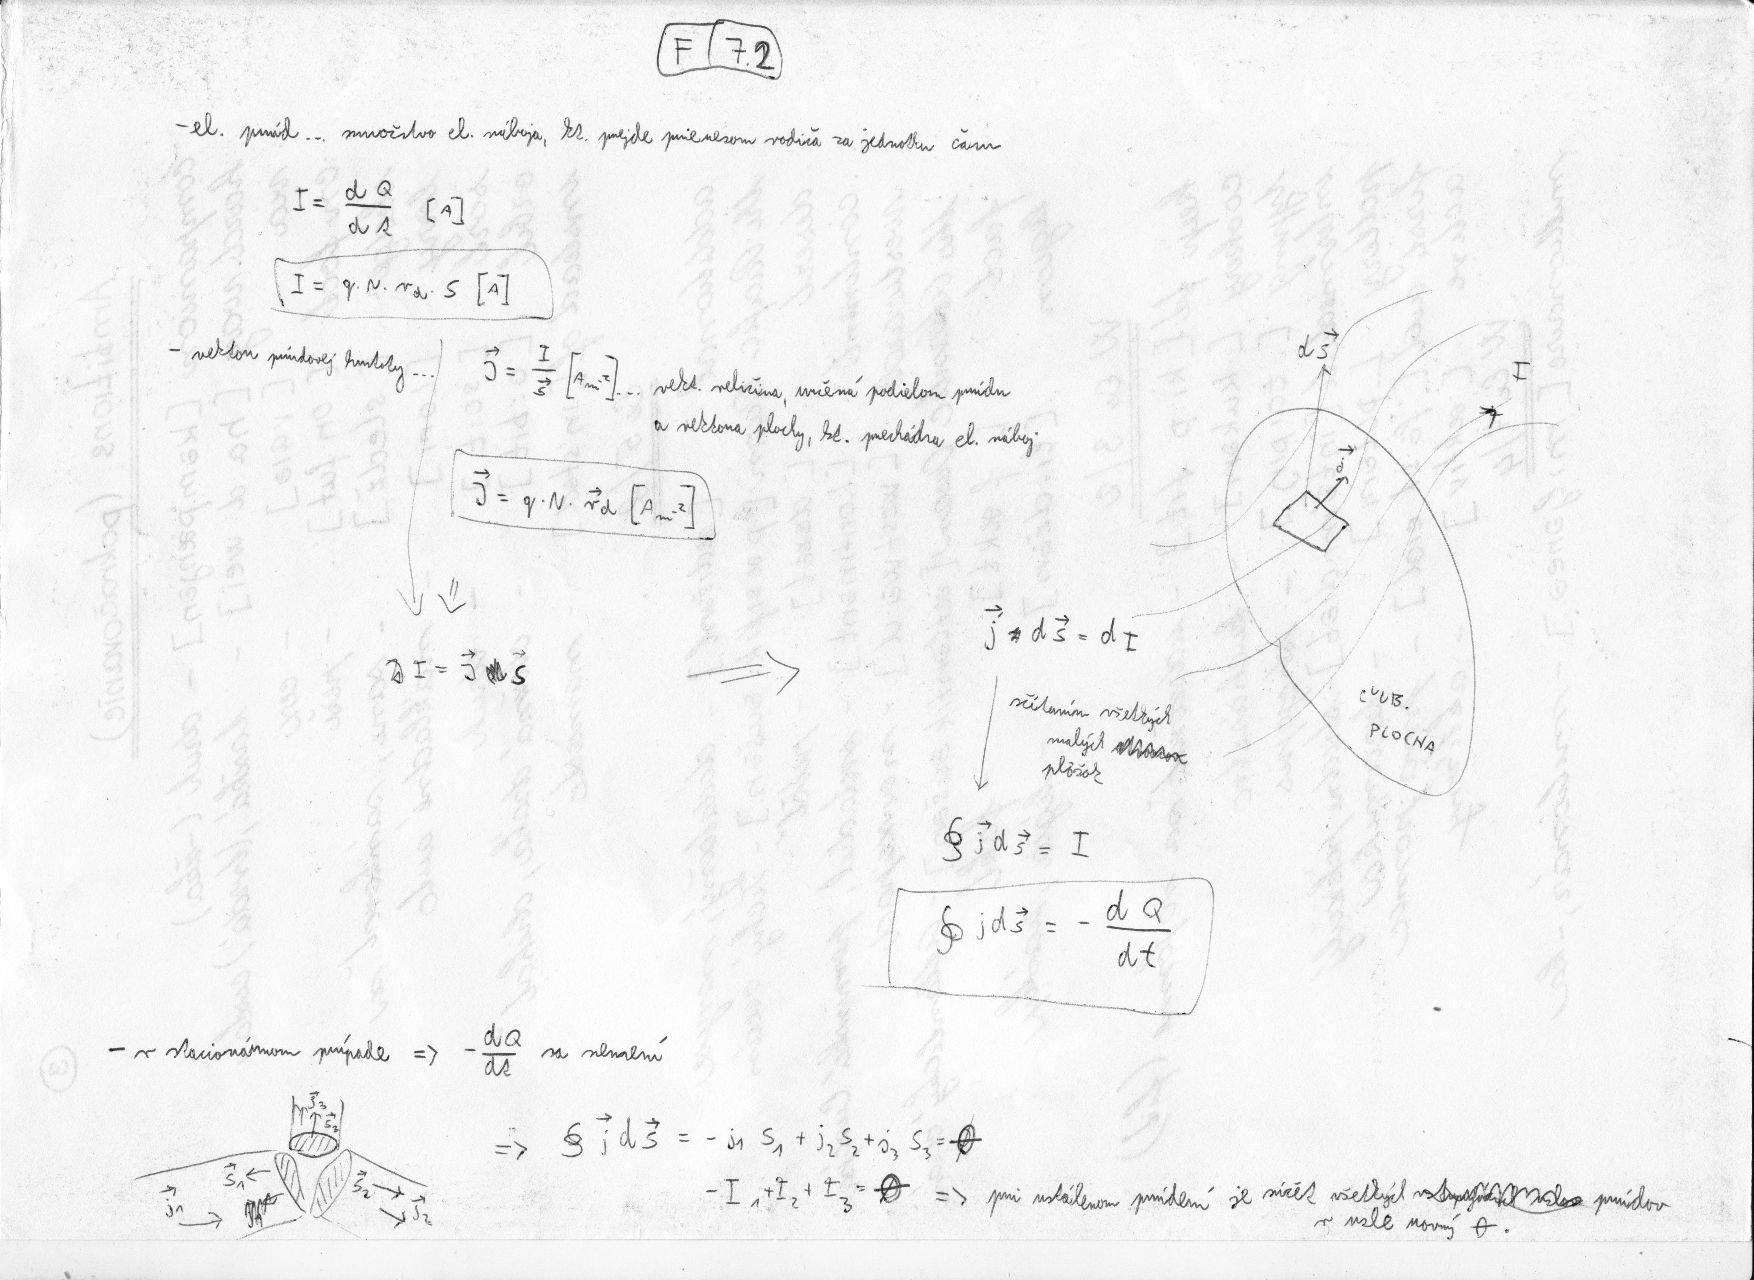 F 7.2
- el. prúd ... množstvo el. náboja, kt. prejde prierezom vodiča za jednotku času
I = dQ/dt [A]
I = q · N · v_d · S [A]
- vektor prúdovej hustoty ... J⃗ = I/S⃗ [Am⁻²] ... vekt. veličina, určená podielom prúdu
a vektora plochy, kt. prechádza el. náboj
J⃗ = q · N · v⃗_d [Am⁻²]
dS⃗
I
j⃗
I = J⃗ S⃗ ⇒ j⃗ · dS⃗ = dI
sčítaním všetkých
malých
plôšok
ĽUB.
PLOCHA
∮ j⃗ dS⃗ = I
∮ j dS⃗ = - dQ/dt
- v stacionárnom prípade => - dQ/dt sa nemení
j⃗₃
S⃗₃
S⃗₁
S⃗₂
j⃗₁
j⃗₂
=> ∮ j⃗ dS⃗ = - j₁ S₁ + j₂ S₂ + j₃ S₃ = 0
- I₁ + I₂ + I₃ = 0 => pri ustálenom prúdení je súčet všetkých prúdov
v uzle rovný 0.